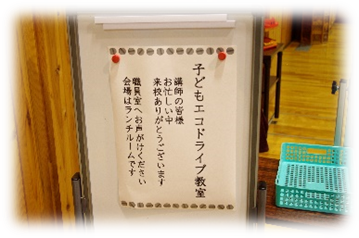 子どもエコドライブ教室
講師の皆様
お忙しい中
来校ありがとうございます
職員室へお声がけください
会場はランチルームです